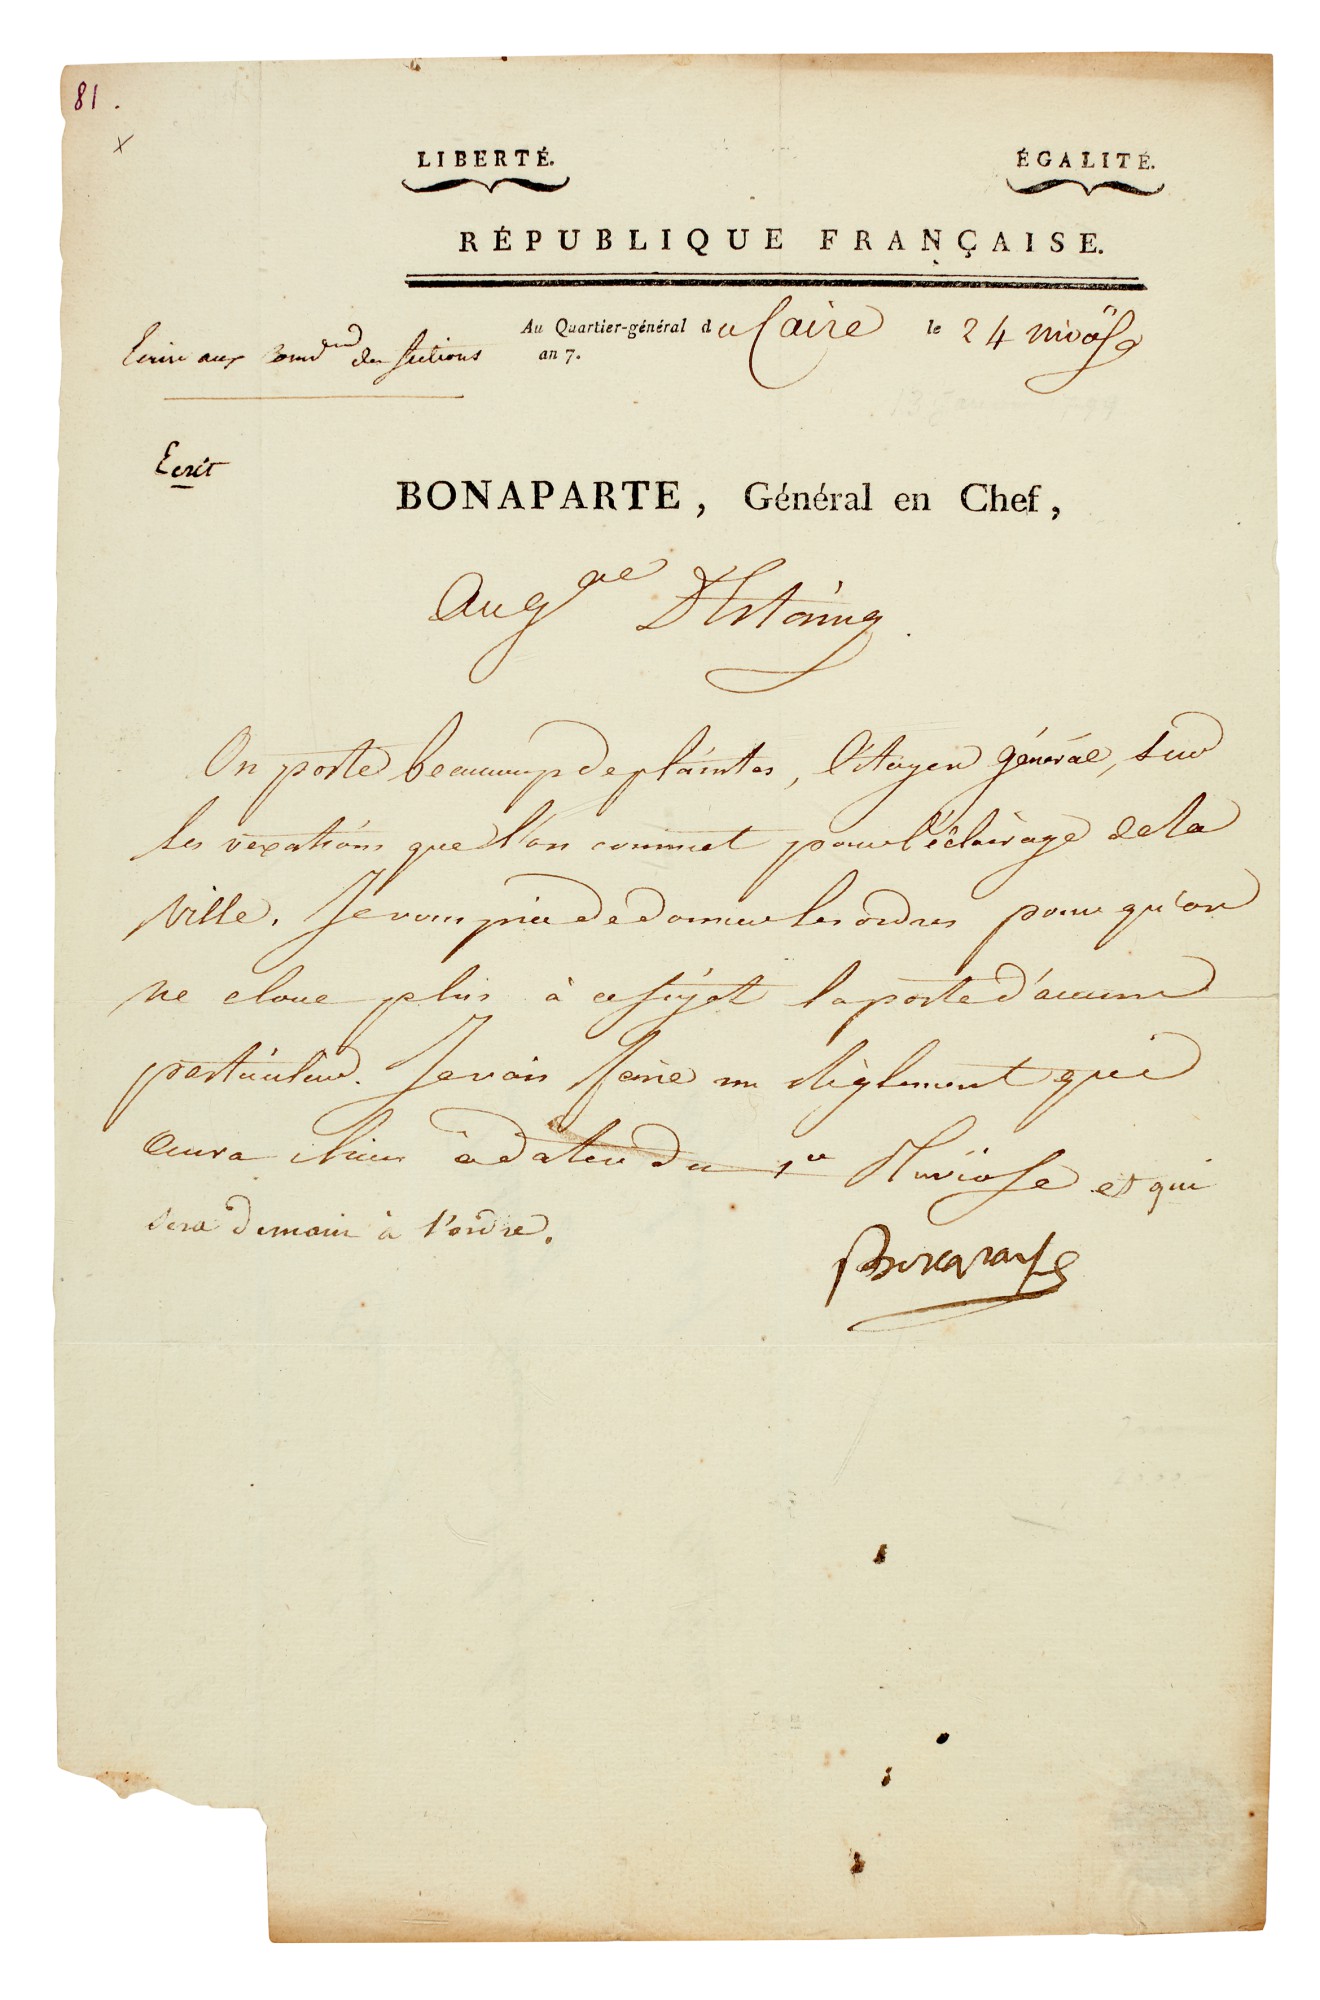 81.
x
LIBERTÉ. ÉGALITÉ.
RÉPUBLIQUE FRANÇAISE.
Au Quartier-général du Caire le 24 nivôse
an 7.
Ecrire aux comd. des sections
13 Janvier 1799
Ecrit
BONAPARTE, Général en Chef,
Au gal D'Estaing
On porte beaucoup de plaintes, Citoyen général, sur
les vexations que l'on commet pour l'éclairage de la
ville. Je vous prie de donner les ordres pour qu'on
ne cloue plus à ce sujet la porte d'aucun
particulier. Je vais faire un règlement qui
aura lieu à dater du 1er Pluviose et qui
sera demain à l'ordre.
Bonaparte